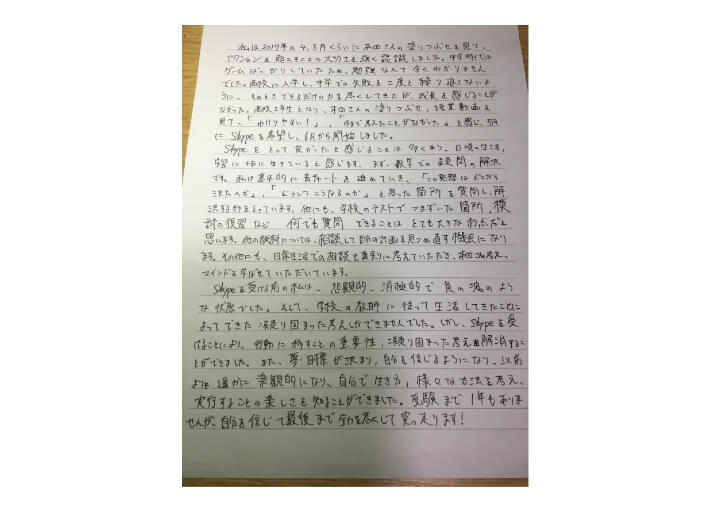 私は2017年の4,5月くらいに平田さんの塗りつぶせを見て、
アクションを起こすことの大切さを強く認識しました。中学時代は
ゲームばっかりしていたため、勉強なんて全くわかりません
でした。高校に入学し、中学での失敗を二度と繰り返さないよ
うに、そのときできるだけの力を尽くしてきたが、成長を感じることが
なかった。高校2年生となり、平田さんの塗りつぶせ、授業動画を
見て、「わかりやすい!」、「今まで見たことがなかった」と感じ、5月
にSkypeを希望し、6月から開始しました。
Skypeをとって良かったと感じることは多くあり、日頃の生活、
学習に十分に生きていると感じます。まず、数学での疑問の解決
です。私は基本的に青チャートを進めていき、「この発想はどこから
決たのか」、「どうしてこうなるのか」と思った箇所を質問し、解
決 をもらっています。他にも、学校のテストでつまずいた箇所、模
試の復習など何でも質問できることはとても大きな利点だと
思います。他の教科については、相談して自分の計画を見つめ直す機会になり
ます。その他にも、日常生活での相談も真剣に考えていただき、平田さんの考え、
マインドを学ばせていただいています。
Skypeを受ける前の私は、悲観的、消極的で負の塊のよう
な状態でした。そして、学校の教師に従って生活してきたことに
よってできた凝り固まった考えしかできませんでした。しかし、Skypeを受
けることにより、行動に移すことの重要性、凝り固まった考えを解消するこ
とができました。また、夢・目標が決まり、自分を信じるようになり、以前
よりも遥かに楽観的になり、自分で生き方、様々な方法を考え、
実行することの楽しさを知ることができました。受験まで1年もありま
せんが、自分を信じて最後まで全力を尽くして突っ走ります!